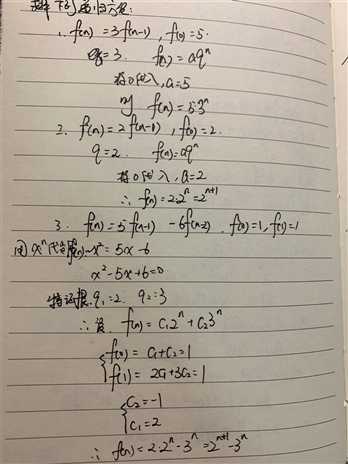 求解下列递归方程:
1. f(n)=3f(n-1), f(0)=5.
q=3. f(n)=aqⁿ
将0代入, a=5
则 f(n)=5·3ⁿ
2. f(n)=2f(n-1), f(0)=2.
q=2. f(n)=aqⁿ
将0代入, a=2
∴ f(n)=2·2ⁿ=2ⁿ⁺¹
3. f(n)=5f(n-1) -6f(n-2). f(0)=1, f(1)=1
用xⁿ代替f(n) x²=5x-6
x²-5x+6=0
特征根 q₁=2. q₂=3
∴设 f(n)=C₁2ⁿ+C₂3ⁿ
f(0)=C₁+C₂=1
f(1)=2C₁+3C₂=1
C₂=-1
C₁=2
∴ f(n)=2·2ⁿ-3ⁿ=2ⁿ⁺¹-3ⁿ